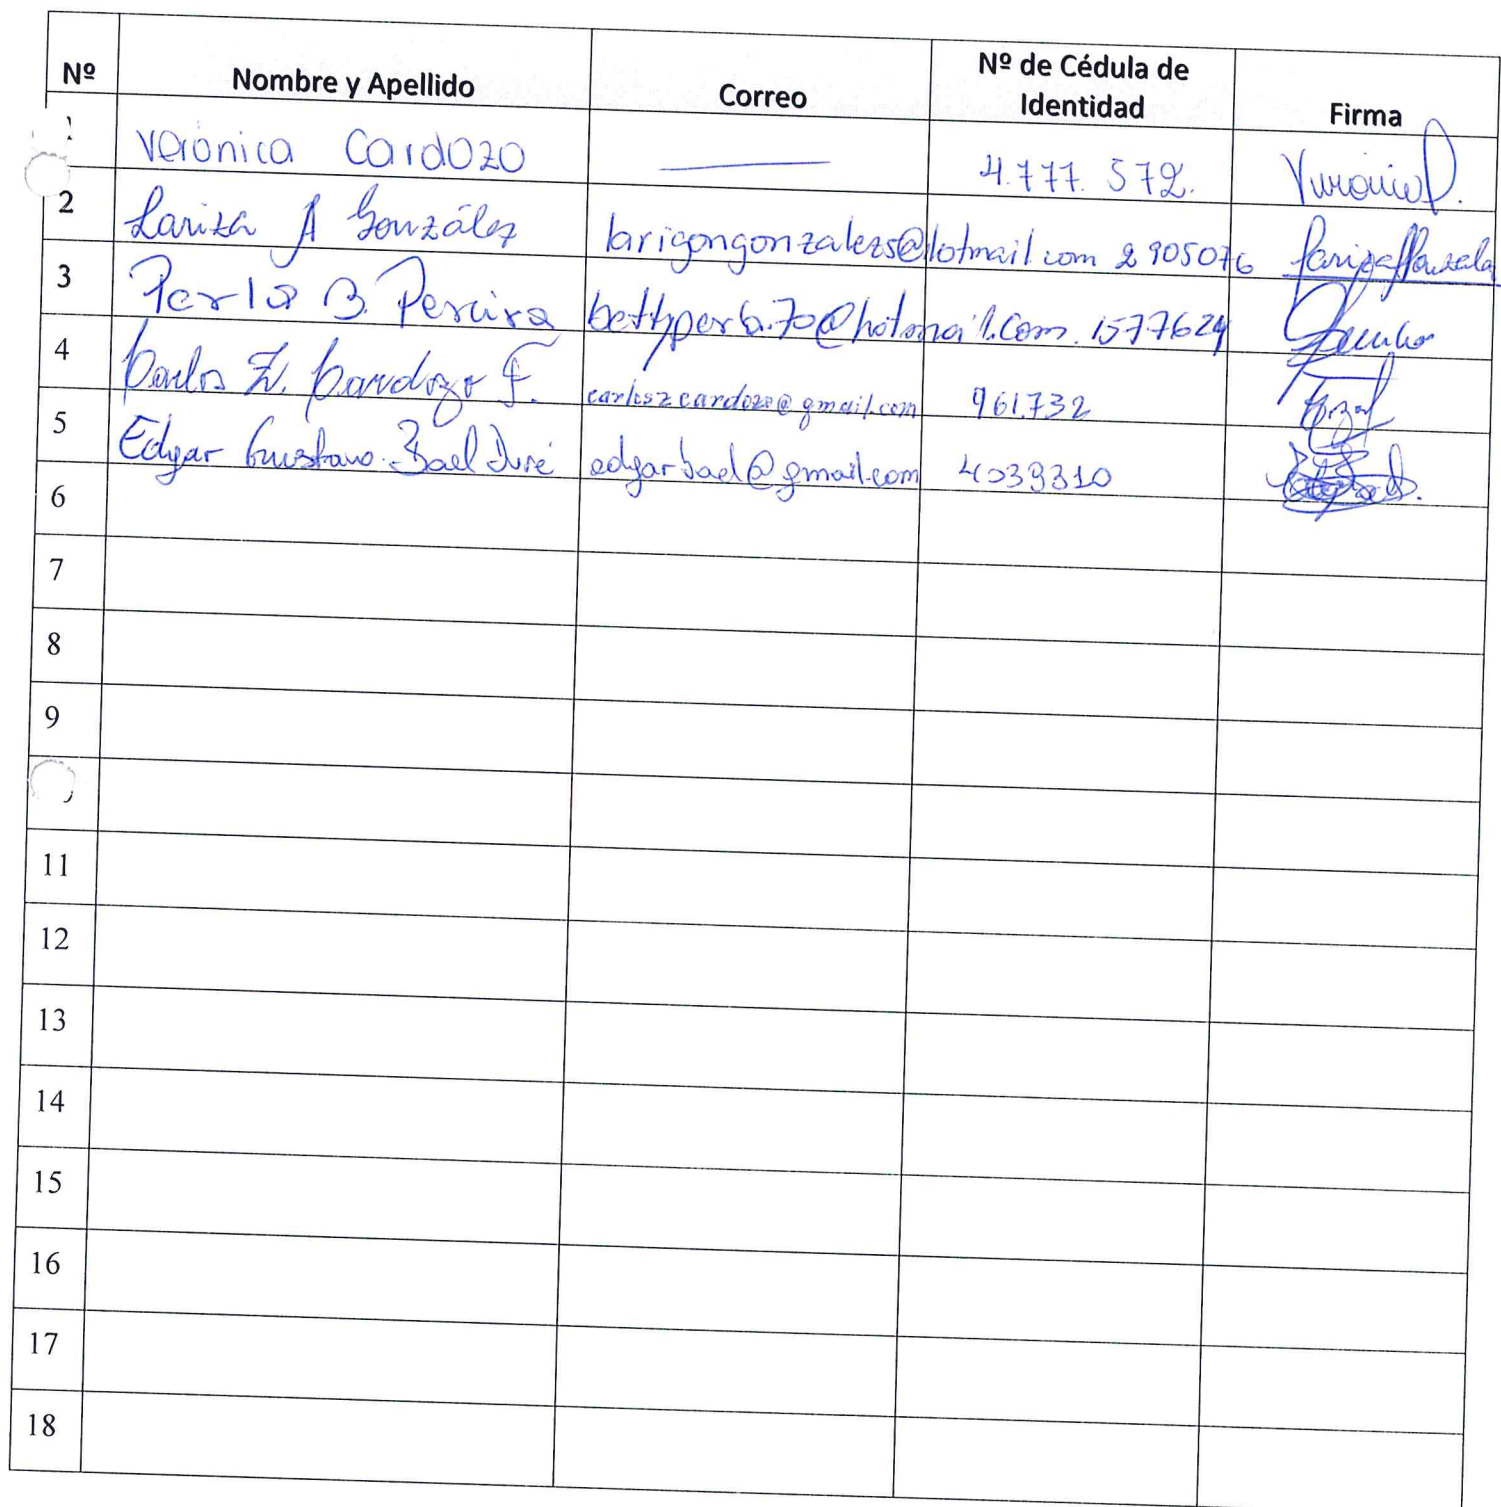 Nº Nombre y Apellido Correo Nº de Cédula de Identidad Firma
Verónica Cardozo 4.777.572.
2 Lariza A González larigongonzalezs@hotmail.com 2905076
3 Perla B. Pereira bettyperb.70@hotmail.com. 1577624
4 Carlos Z. Cardozo F. carloszcardozo@gmail.com 961.732
5 Edgar Gustavo Bael Duré edgarbael@gmail.com 4039310
6
7
8
9
11
12
13
14
15
16
17
18